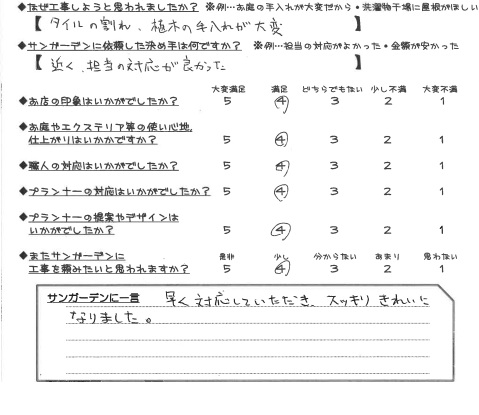 ◆なぜ工事しようと思われましたか？ ※例…お庭の手入れが大変だから・洗濯物干場に屋根がほしい
【 タイルの割れ、植木の手入れが大変 】
◆サンガーデンに依頼した決め手は何ですか？ ※例…担当の対応がよかった・金額が安かった
【 近く、担当の対応が良かった 】
大変満足 満足 どちらでもない 少し不満 大変不満
◆お店の印象はいかがでしたか？ 5 4 3 2 1
◆お庭やエクステリア等の使い心地、
仕上がりはいかがですか？ 5 4 3 2 1
◆職人の対応はいかがでしたか？ 5 4 3 2 1
◆プランナーの対応はいかがでしたか？ 5 4 3 2 1
◆プランナーの提案やデザインは
いかがでしたか？ 5 4 3 2 1
◆またサンガーデンに 是非 少し 分からない あまり 思わない
工事を頼みたいと思われますか？ 5 4 3 2 1
サンガーデンに一言 早く対応していただき、スッキリきれいに
なりました。